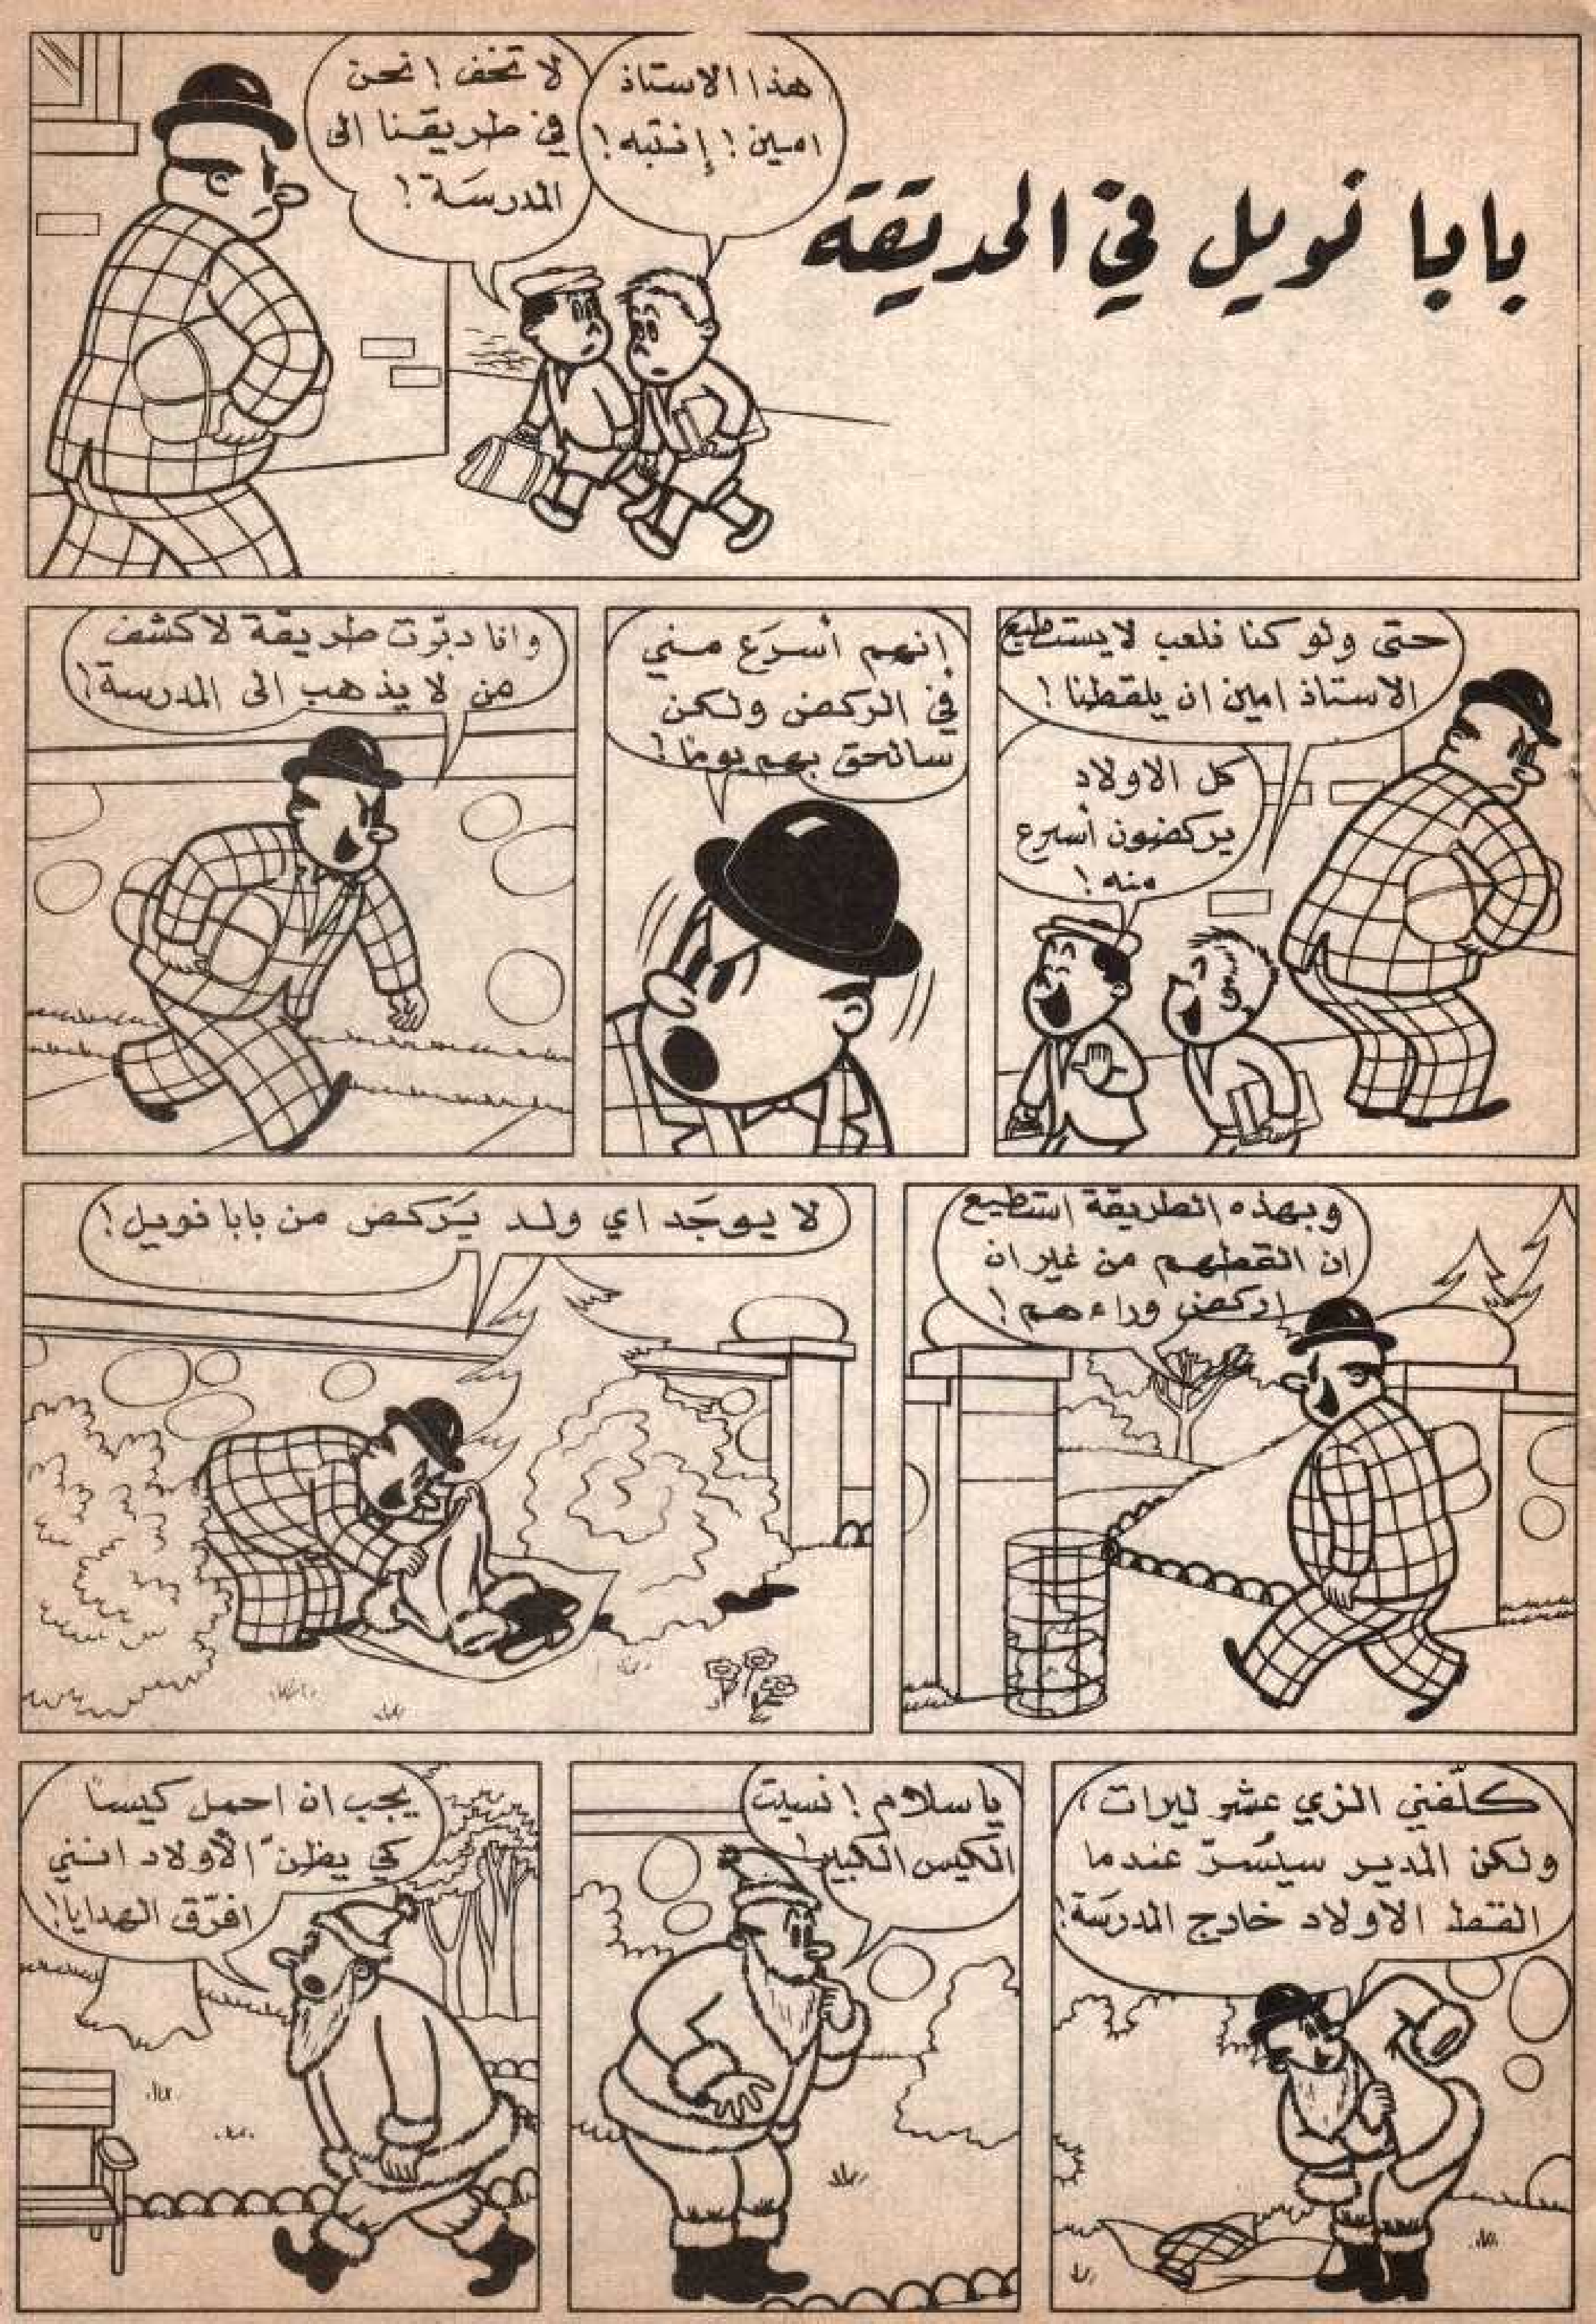 بابا نويل في الحديقة
هذا الاستاذ
امين! إنتبه!
لا تخف! نحن
في طريقنا الى
المدرسَة!
حتى ولو كنا نلعب لا يستطيع
الاستاذ امين ان يلقطنا!
كل الاولاد
يركضون أسرع
منه!
إنهم أسرَع مني
في الركض ولكن
سالحق بهم يومًا!
وانا دبّرت طريقة لاكشف
من لا يذهب الى المدرسة!
وبهذه الطريقة استطيع
ان القطهم من غير ان
اركض وراءهم!
لا يوجَد اي ولد يَركض من بابا نويل!
كلّفني الزي عشر ليرات،
ولكن المدير سيُسرّ عندما
القط الاولاد خارج المدرسَة!
يا سلام! نسيت
الكيس الكبير!
يجب ان احمل كيسًا
كي يظنّ الأولاد انني
افرّق الهدايا!